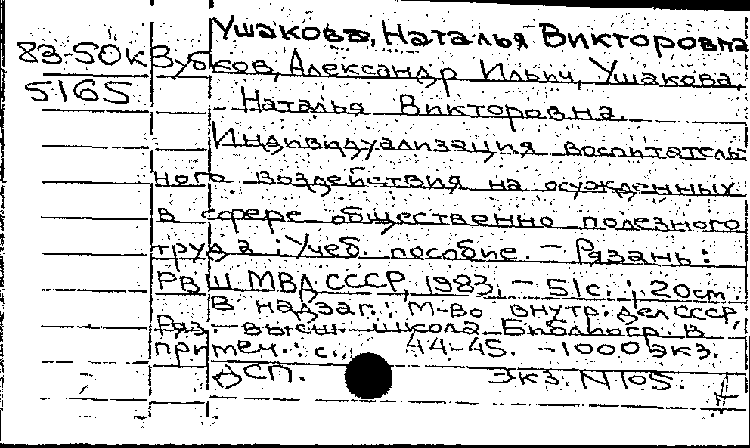 Ушакова, Наталья Викторовна
83-50к Зубков, Александр Ильич, Ушакова,
5165 Наталья Викторовна.
Индивидуализация воспитатель-
ного воздействия на осужденных
в сфере общественно полезного
труда : Учеб. пособие. — Рязань :
РВШ МВД СССР, 1983. — 51 с. ; 20 см.
В надзаг.: М-во внутр. дел СССР,
Ряз. высш. школа. Библиогр. в
примеч.: с. 44-45. — 1000 экз.
ДСП. Экз. N 105.